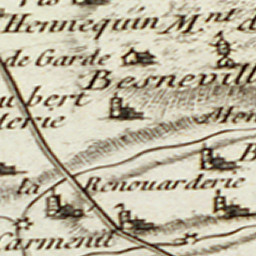 Hennequin Mnt d
de Garde
Besnevill
bert
terie
Mon
la Renouarderie
Carmenil